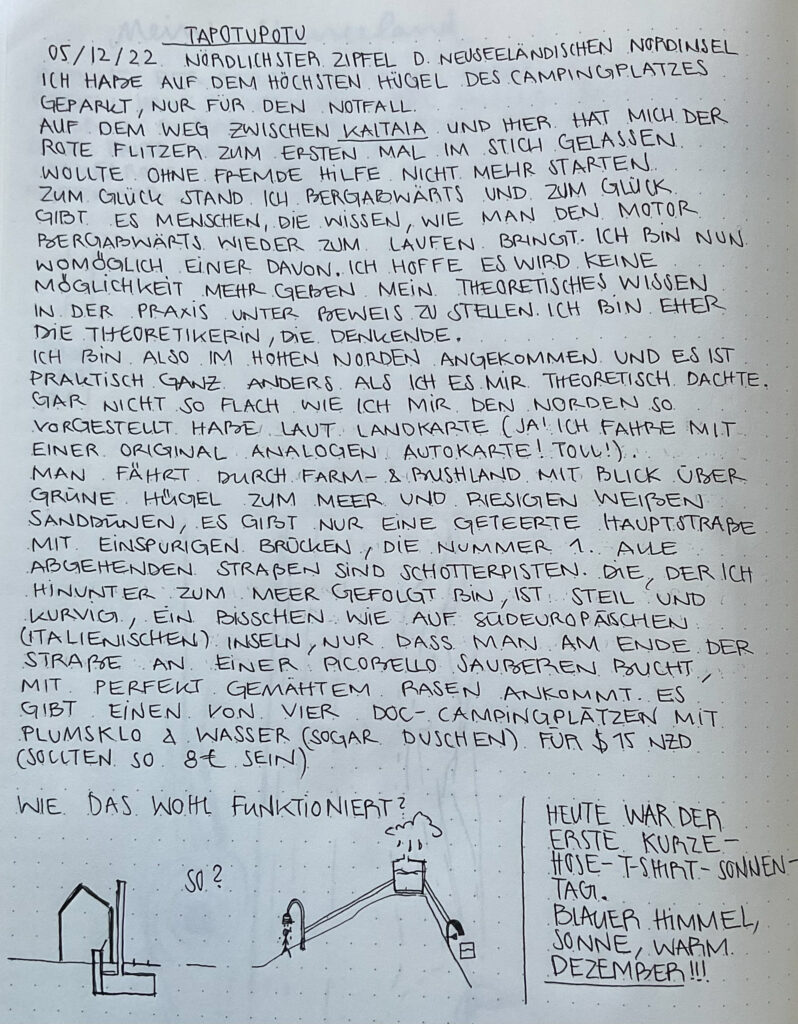 TAPOTUPOTU
05/12/22 NÖRDLICHSTER ZIPFEL D. NEUSEELÄNDISCHEN NORDINSEL
ICH HABE AUF DEM HÖCHSTEN HÜGEL DES CAMPINGPLATZES
GEPARKT, NUR FÜR DEN NOTFALL.
AUF DEM WEG ZWISCHEN KAITAIA UND HIER HAT MICH DER
ROTE FLITZER ZUM ERSTEN MAL IM STICH GELASSEN.
WOLLTE OHNE FREMDE HILFE NICHT MEHR STARTEN.
ZUM GLÜCK STAND ICH BERGABWÄRTS UND ZUM GLÜCK
GIBT ES MENSCHEN, DIE WISSEN, WIE MAN DEN MOTOR
BERGABWÄRTS WIEDER ZUM LAUFEN BRINGT. ICH BIN NUN
WOMÖGLICH EINER DAVON. ICH HOFFE ES WIRD KEINE
MÖGLICHKEIT MEHR GEBEN MEIN THEORETISCHES WISSEN
IN DER PRAXIS UNTER BEWEIS ZU STELLEN. ICH BIN EHER
DIE THEORETIKERIN, DIE DENKENDE.
ICH BIN ALSO IM HOHEN NORDEN ANGEKOMMEN UND ES IST
PRAKTISCH GANZ ANDERS ALS ICH ES MIR THEORETISCH DACHTE.
GAR NICHT SO FLACH WIE ICH MIR DEN NORDEN SO
VORGESTELLT HABE LAUT LANDKARTE (JA! ICH FAHRE MIT
EINER ORIGINAL ANALOGEN AUTOKARTE! TOLL!).
MAN FÄHRT DURCH FARM- & BUSHLAND MIT BLICK ÜBER
GRÜNE HÜGEL ZUM MEER UND RIESIGEN WEIßEN
SANDDÜNEN, ES GIBT NUR EINE GETEERTE HAUPTSTRAßE
MIT EINSPURIGEN BRÜCKEN, DIE NUMMER 1. ALLE
ABGEHENDEN STRAßEN SIND SCHOTTERPISTEN. DIE, DER ICH
HINUNTER ZUM MEER GEFOLGT BIN, IST STEIL UND
KURVIG, EIN BISSCHEN WIE AUF SÜDEUROPÄISCHEN
(ITALIENISCHEN) INSELN, NUR DASS MAN AM ENDE DER
STRAßE AN EINER PICOBELLO SAUBEREN BUCHT,
MIT PERFEKT GEMÄHTEM RASEN ANKOMMT. ES
GIBT EINEN VON VIER DOC-CAMPINGPLÄTZEN MIT
PLUMSKLO & WASSER (SOGAR DUSCHEN) FÜR $15 NZD
(SOLLTEN SO 8€ SEIN)
WIE DAS WOHL FUNKTIONIERT?
SO?
HEUTE WAR DER
ERSTE KURZE-
HOSE-T-SHIRT-SONNEN-
TAG.
BLAUER HIMMEL,
SONNE, WARM.
DEZEMBER!!!